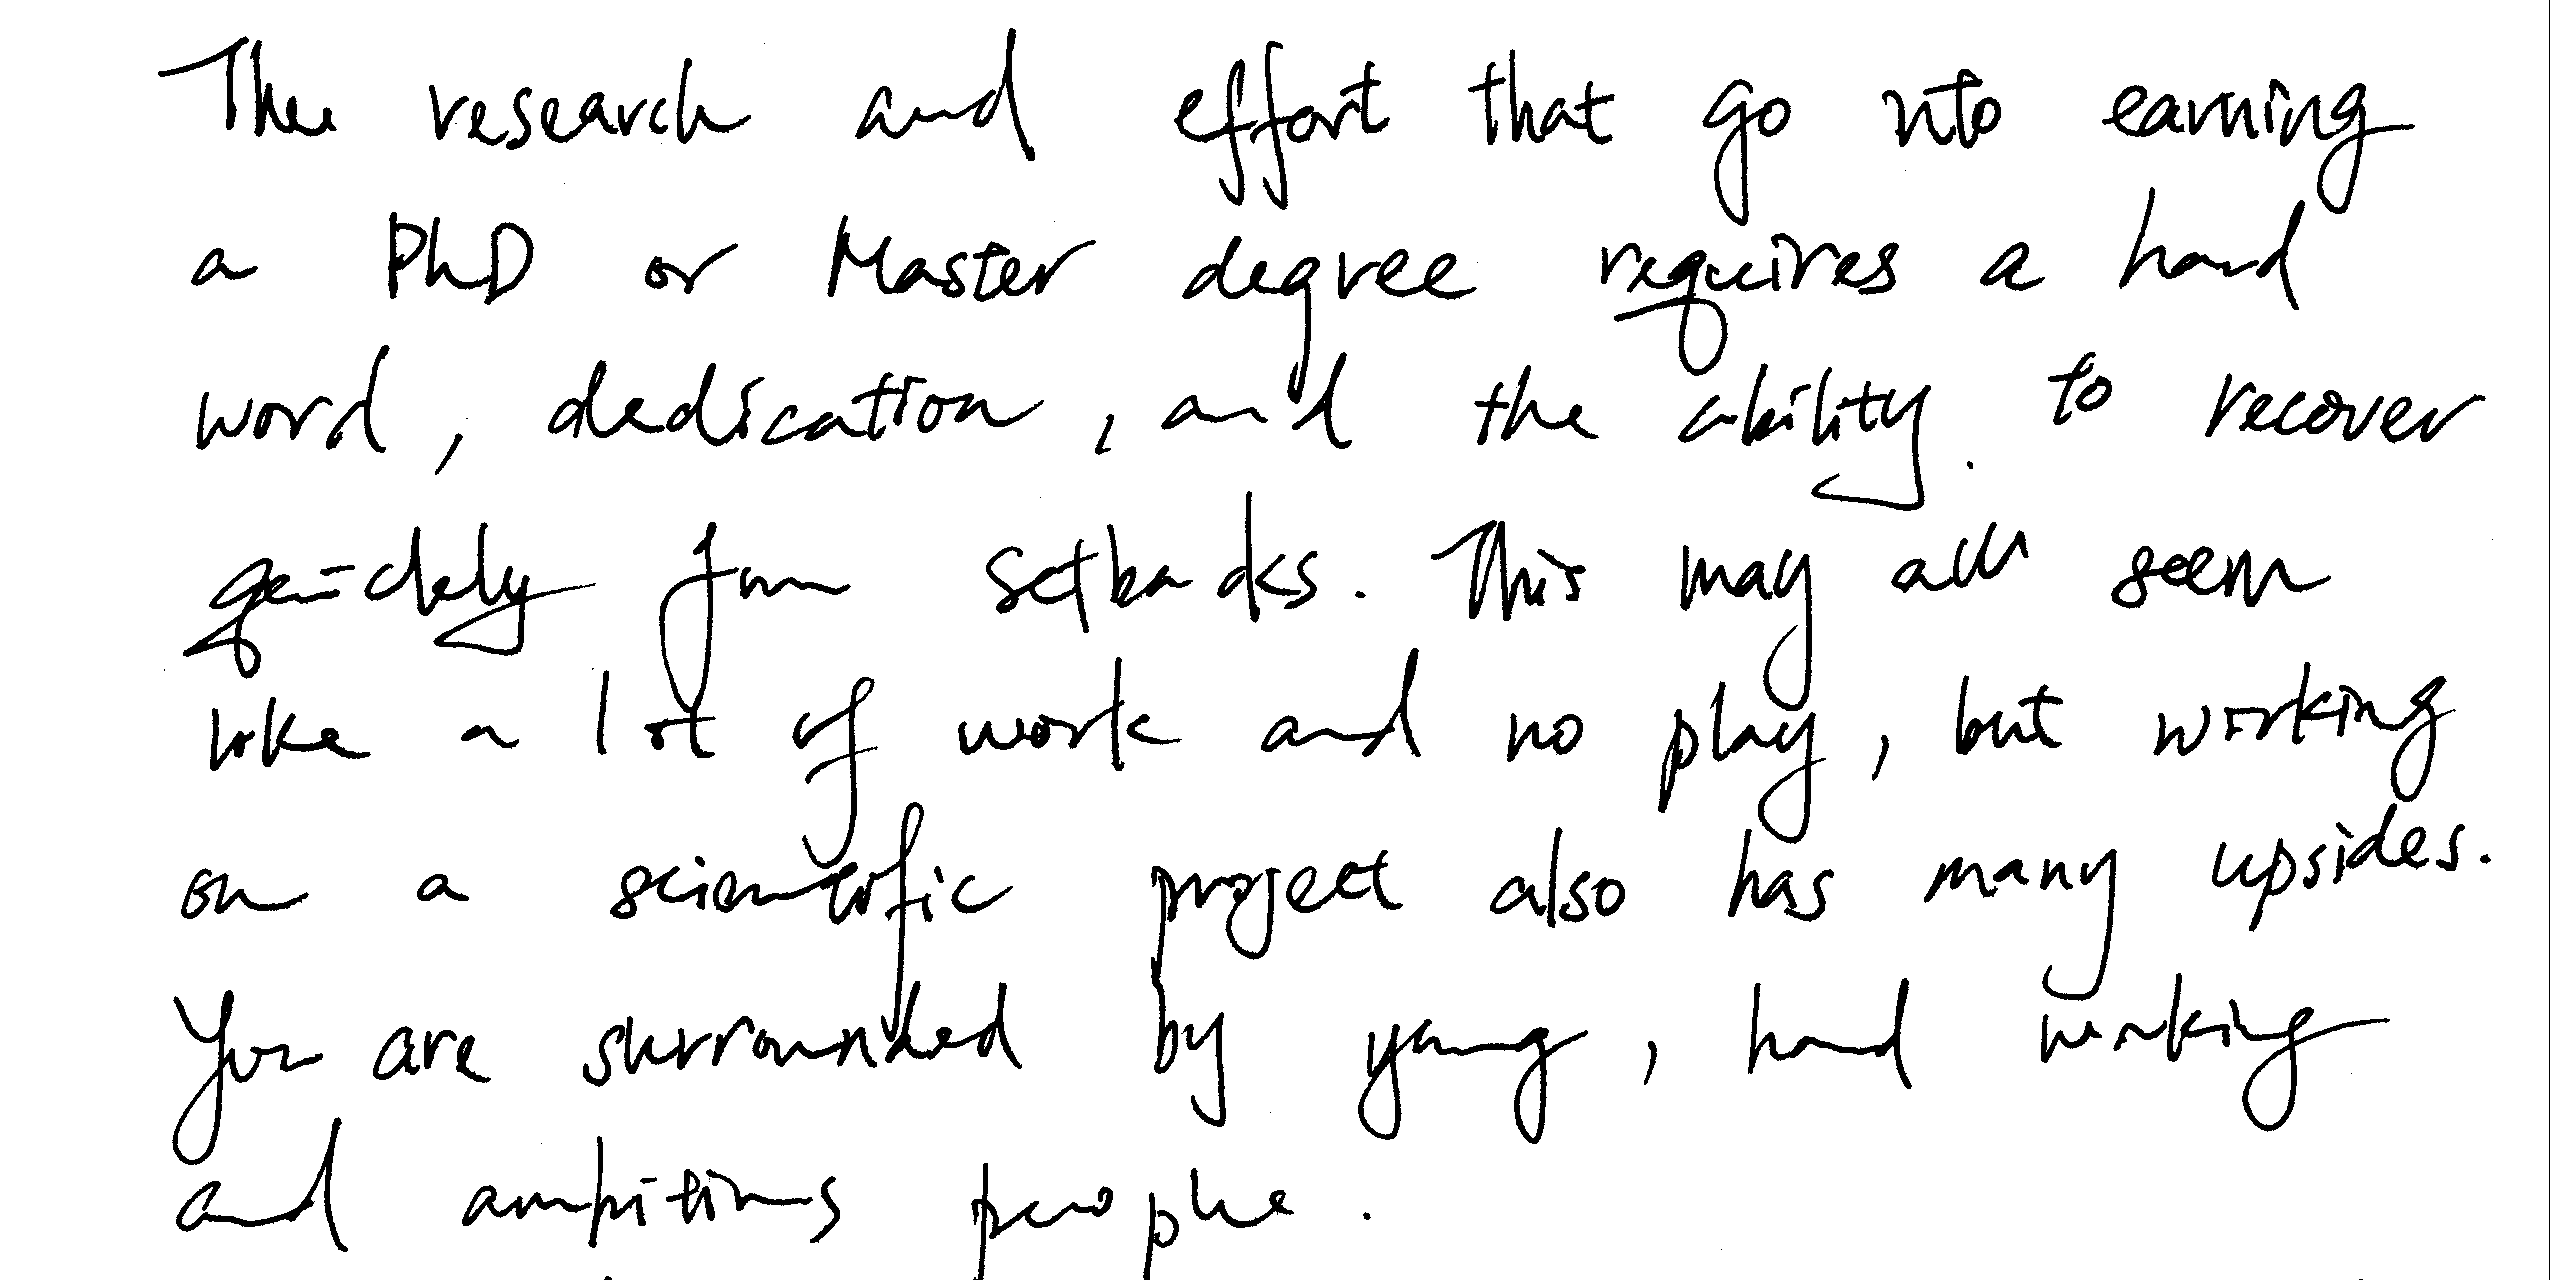 The research and effort that go into earning
a PhD or Master degree requires a hard
word, dedication, and the ability to recover
quickly from setbacks. This may all seem
like a lot of work and no play, but working
on a scientific project also has many upsides.
You are surrounded by young, hard working
and ambitious people.